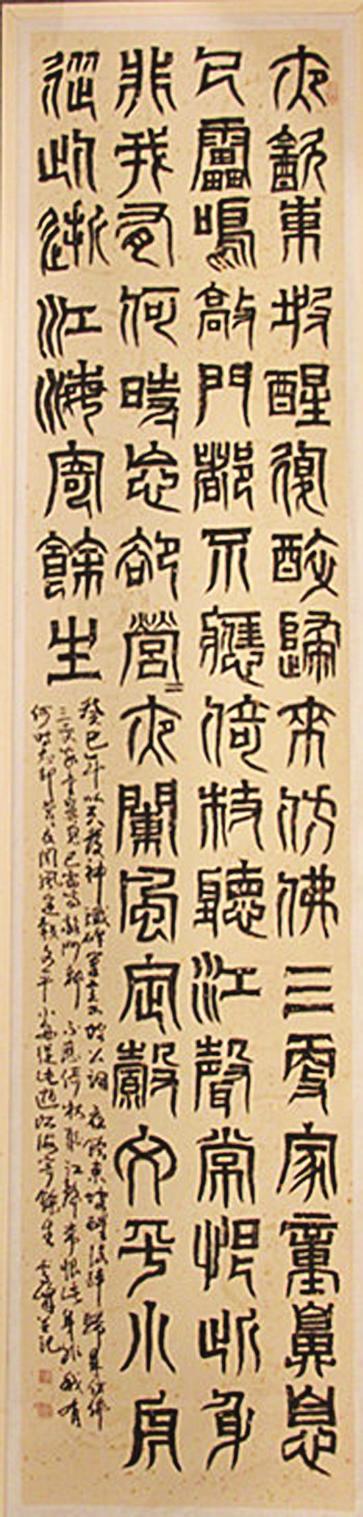 夜飲東坡醒復醉歸來仿佛三更家童鼻息
已靁鳴敲門都不應倚杖聽江聲常恨此身
非我有何時忘卻營〻夜闌風定縠文平小舟
從此逝江海寄餘生
癸巳年以天發神讖碑筆意詞夜飲東坡醒復醉歸來仿佛
三更家童鼻息已雷鳴敲門都不應倚杖聽江聲常恨此身非我有
何時忘卻營夜闌風定縠文平小舟從此逝江海寄餘生記